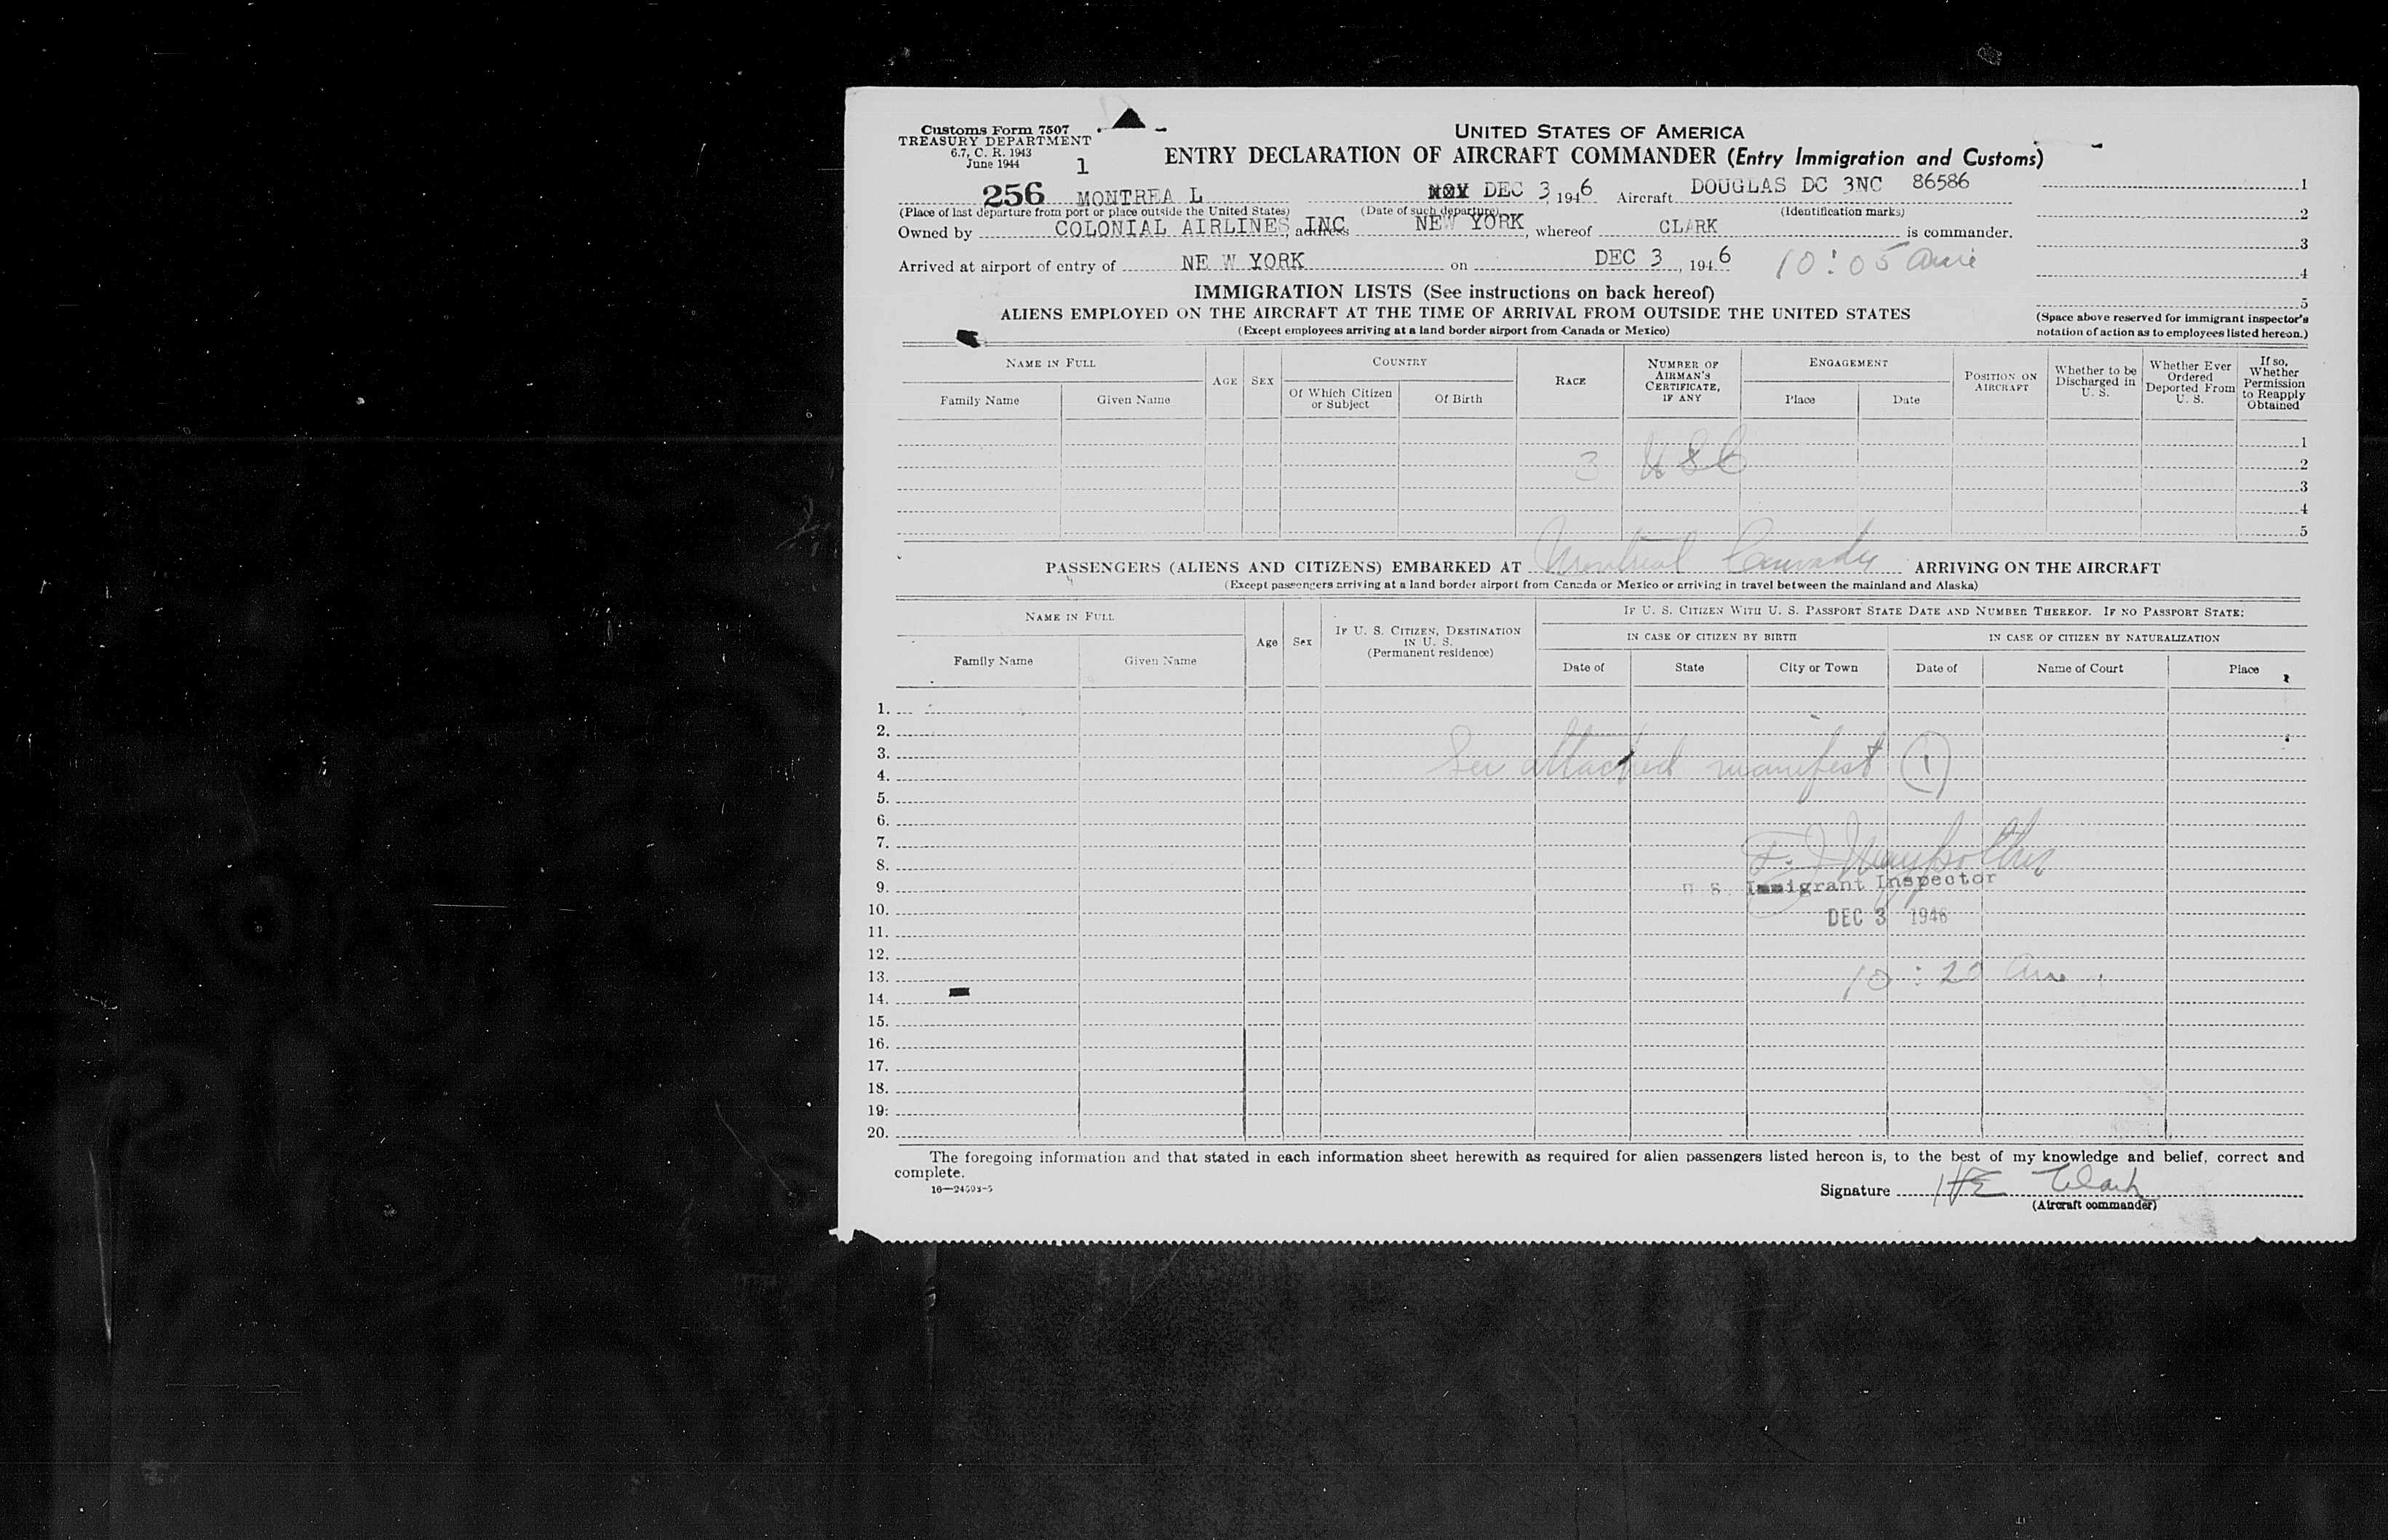 Customs Form 7507
TREASURY DEPARTMENT
6.7, C. R. 1943
June 1944
1
UNITED STATES OF AMERICA
ENTRY DECLARATION OF AIRCRAFT COMMANDER (Entry Immigration and Customs)
256 MONTREA L NOV DEC 3, 1946 Aircraft DOUGLAS DC 3NC 86586
(Place of last departure from port or place outside the United States) (Date of such departure) (Identification marks)
Owned by COLONIAL AIRLINES INC, address NEW YORK, whereof CLARK is commander.
Arrived at airport of entry of NE W YORK on DEC 3, 1946 10:05 am
1
2
3
4
5
(Space above reserved for immigrant inspector's
notation of action as to employees listed hereon.)
IMMIGRATION LISTS (See instructions on back hereof)
ALIENS EMPLOYED ON THE AIRCRAFT AT THE TIME OF ARRIVAL FROM OUTSIDE THE UNITED STATES
(Except employees arriving at a land border airport from Canada or Mexico)
NAME IN FULL
Family Name
Given Name
AGE
SEX
COUNTRY
Of Which Citizen
or Subject
Of Birth
RACE
NUMBER OF
AIRMAN'S
CERTIFICATE,
IF ANY
ENGAGEMENT
Place
Date
POSITION ON
AIRCRAFT
Whether to be
Discharged in
U. S.
Whether Ever
Ordered
Deported From
U. S.
If so,
Whether
Permission
to Reapply
Obtained
1
2
3
4
5
3 USC
PASSENGERS (ALIENS AND CITIZENS) EMBARKED AT Montreal Canada ARRIVING ON THE AIRCRAFT
(Except passengers arriving at a land border airport from Canada or Mexico or arriving in travel between the mainland and Alaska)
NAME IN FULL
Family Name
Given Name
Age
Sex
IF U. S. CITIZEN, DESTINATION
IN U. S.
(Permanent residence)
IF U. S. CITIZEN WITH U. S. PASSPORT STATE DATE AND NUMBER THEREOF. IF NO PASSPORT STATE:
IN CASE OF CITIZEN BY BIRTH
IN CASE OF CITIZEN BY NATURALIZATION
Date of
State
City or Town
Date of
Name of Court
Place
1.
2.
3.
4.
5.
6.
7.
8.
9.
10.
11.
12.
13.
14.
15.
16.
17.
18.
19.
20.
See attached manifest (1)
U. S. Immigrant Inspector
DEC 3 1946
10:20 am
The foregoing information and that stated in each information sheet herewith as required for alien passengers listed hereon is, to the best of my knowledge and belief, correct and
complete.
Signature Clark
(Aircraft commander)